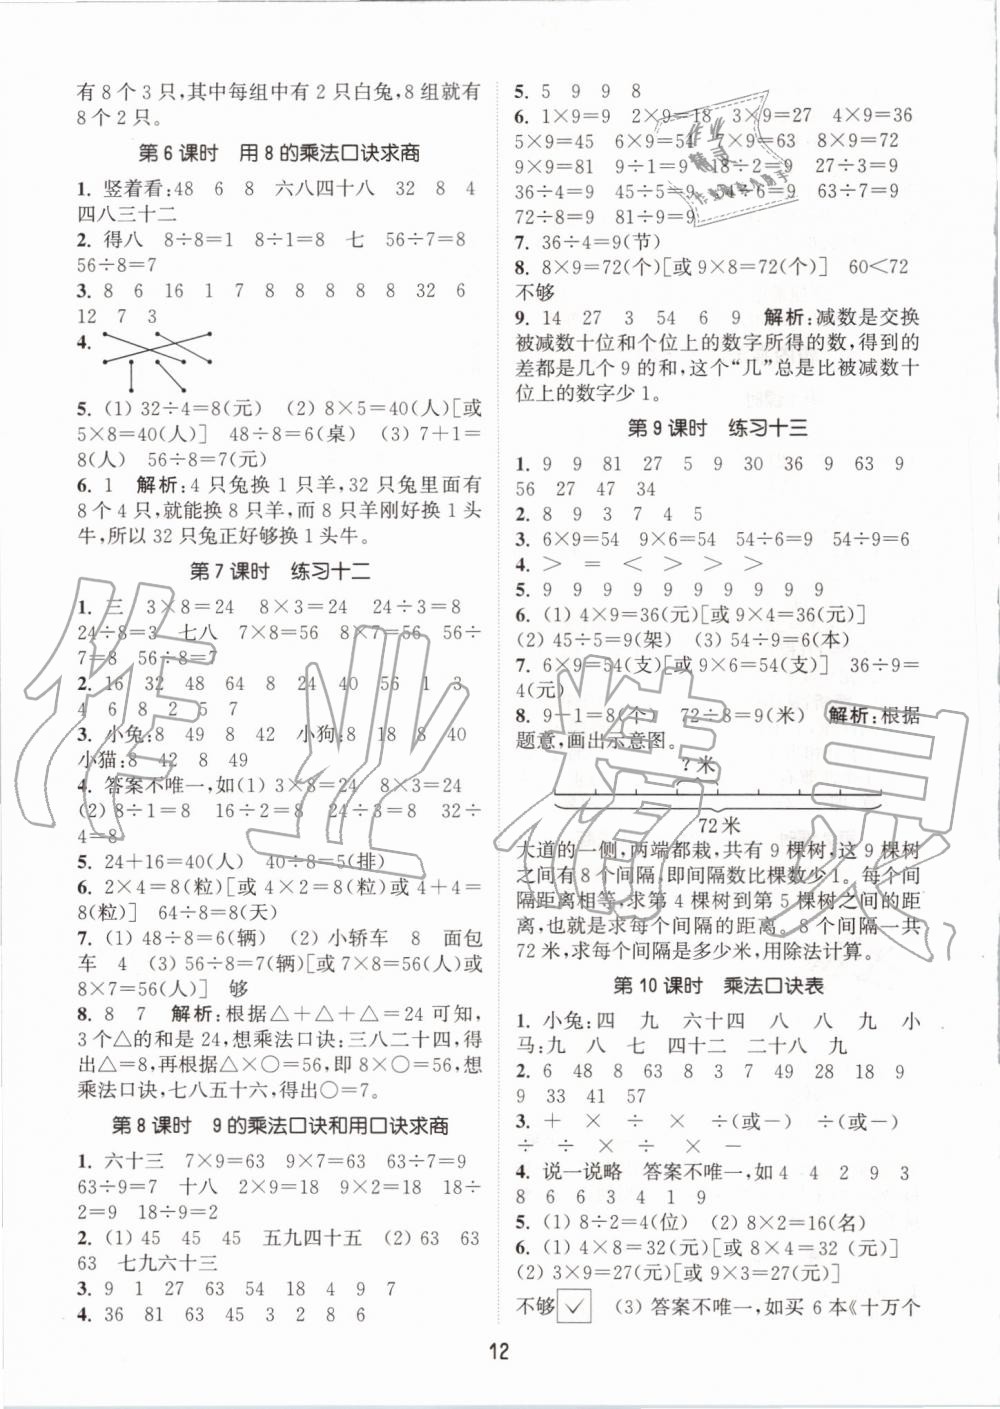 有8个3只,其中每组中有2只白兔,8组就有
8个2只。
第6课时 用8的乘法口诀求商
1. 竖着看:48 6 8 六八四十八 32 8 4
四八三十二
2. 得八 8÷8=1 8÷1=8 七 56÷7=8
56÷8=7
3. 8 6 16 1 7 8 8 8 8 8 32 6
12 7 3
4.
5. (1) 32÷4=8(元) (2) 8×5=40(人)[或
5×8=40(人)] 48÷8=6(桌) (3) 7+1=
8(人) 56÷8=7(元)
6. 1 解析:4只兔换1只羊,32只兔里面有
8个4只,就能换8只羊,而8只羊刚好换1头
牛,所以32只兔正好够换1头牛。
第7课时 练习十二
1. 三 3×8=24 8×3=24 24÷3=8
24÷8=3 七八 7×8=56 8×7=56 56÷
7=8 56÷8=7
2. 16 32 48 64 8 24 40 56 1 3
4 6 8 2 5 7
3. 小兔:8 49 8 42 小狗:8 18 8 40
小猫:8 42 8 49
4. 答案不唯一,如(1) 3×8=24 8×3=24
(2) 8÷1=8 16÷2=8 24÷3=8 32÷
4=8
5. 24+16=40(人) 40÷8=5(排)
6. 2×4=8(粒)[或4×2=8(粒)或4+4=
8(粒)] 64÷8=8(天)
7. (1) 48÷8=6(辆) (2) 小轿车 8 面包
车 4 (3) 56÷8=7(辆)[或7×8=56(人)或
8×7=56(人)] 够
8. 8 7 解析:根据△+△+△=24可知,
3个△的和是24,想乘法口诀:三八二十四,得
出△=8,再根据△×○=56,即8×○=56,想
乘法口诀,七八五十六,得出○=7。
第8课时 9的乘法口诀和用口诀求商
1. 六十三 7×9=63 9×7=63 63÷7=9
63÷9=7 十八 2×9=18 9×2=18 18÷
2=9 18÷9=2
2. (1) 45 45 45 五九四十五 (2) 63 63
63 七九六十三
3. 9 1 27 63 54 18 4 9 7
4. 36 81 63 45 3 2 8 6
5. 5 9 9 8
6. 1×9=9 2×9=18 3×9=27 4×9=36
5×9=45 6×9=54 7×9=63 8×9=72
9×9=81 9÷1=9 18÷2=9 27÷3=9
36÷4=9 45÷5=9 54÷6=9 63÷7=9
72÷8=9 81÷9=9
7. 36÷4=9(节)
8. 8×9=72(个)[或9×8=72(个)] 60<72
不够
9. 14 27 3 54 6 9 解析:减数是交换
被减数十位和个位上的数字所得的数,得到的
差都是几个9的和,这个“几”总是比被减数十
位上的数字少1。
第9课时 练习十三
1. 9 9 81 27 5 9 30 36 9 63 9
56 27 47 34
2. 8 9 3 7 4 5
3. 6×9=54 9×6=54 54÷6=9 54÷9=6
4. > = < > > >
5. 9 9 9 9 9 9 9 9 9 9
6. (1) 4×9=36(元)[或9×4=36(元)]
(2) 45÷5=9(架) (3) 54÷9=6(本)
7. 6×9=54(支)[或9×6=54(支)] 36÷9=
4(元)
8. 9-1=8(个) 72÷8=9(米) 解析:根据
题意,画出示意图。
?米
72米
大道的一侧,两端都栽,共有9棵树,这9棵树
之间有8个间隔,即间隔数比棵数少1。每个间
隔距离相等,求第4棵树到第5棵树之间的距
离,也就是求每个间隔的距离。8个间隔一共
72米,求每个间隔是多少米,用除法计算。
第10课时 乘法口诀表
1. 小兔:四 九 六十四 八 八 九 小
马:九 八 七 四十二 二十八 九
2. 6 48 8 63 8 3 7 49 28 18 9
9 33 41 57
3. + × - ÷ ÷(或-) ÷(或-)
÷ ÷ × ÷ × -
4. 说一说略 答案不唯一,如4 4 2 9 3
8 6 6 3 4 1 9
5. (1) 8÷2=4(位) (2) 8×2=16(名)
6. (1) 4×8=32(元)[或8×4=32(元)]
(2) 3×9=27(元)[或9×3=27(元)]
不够 ✓ (3) 答案不唯一,如买6本《十万个
12
作业精灵